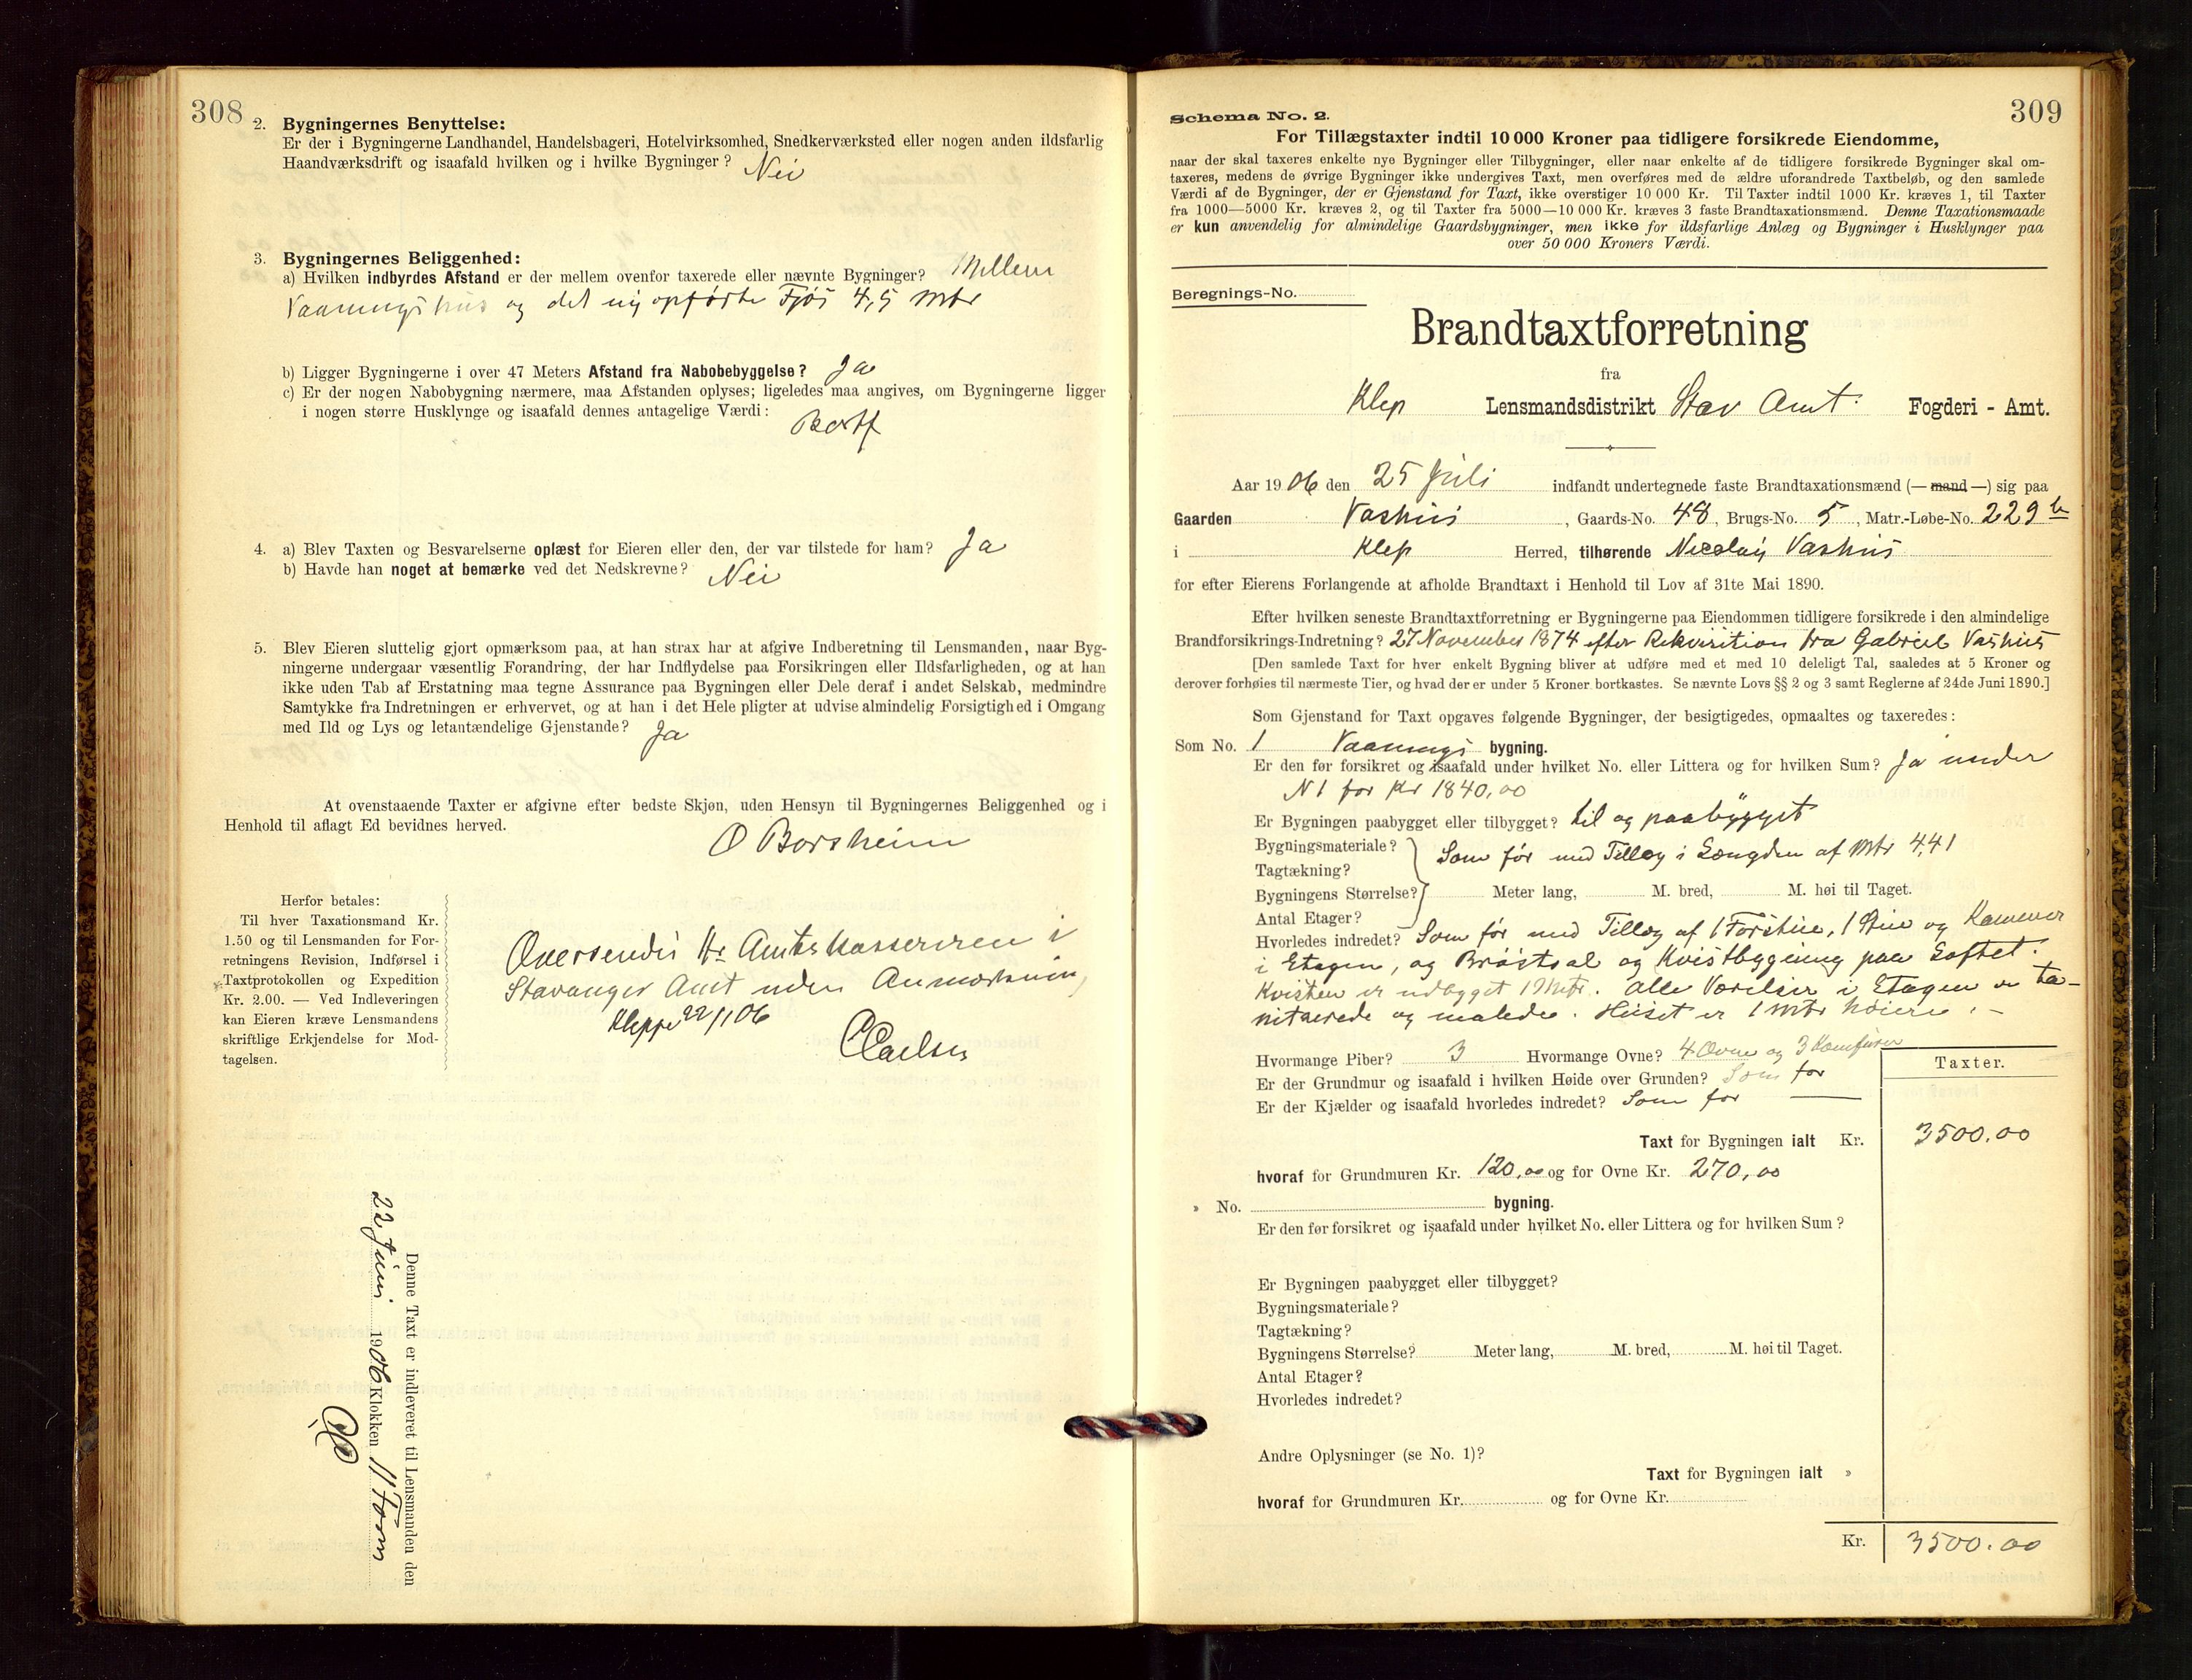 308
2. Bygningernes Benyttelse:
Er der i Bygningerne Landhandel, Handelsbageri, Hotelvirksomhed, Snedkerværksted eller nogen anden ildsfarlig
Haandværksdrift og isaafald hvilken og i hvilke Bygninger? Nei
3. Bygningernes Beliggenhed:
a) Hvilken indbyrdes Afstand er der mellem ovenfor taxerede eller nævnte Bygninger? Mellem
Vaaningshus og det ny opførte Fjøs 4,5 Mtr
b) Ligger Bygningerne i over 47 Meters Afstand fra Nabobebyggelse? Ja
c) Er der nogen Nabobygning nærmere, maa Afstanden oplyses; ligeledes maa angives, om Bygningerne ligger
i nogen større Husklynge og isaafald dennes antagelige Værdi: Bortf
4. a) Blev Taxten og Besvarelserne oplæst for Eieren eller den, der var tilstede for ham? Ja
b) Havde han noget at bemærke ved det Nedskrevne? Nei
5. Blev Eieren sluttelig gjort opmærksom paa, at han strax har at afgive Indberetning til Lensmanden, naar Byg-
ningerne undergaar væsentlig Forandring, der har Indflydelse paa Forsikringen eller Ildsfarligheden, og at han
ikke uden Tab af Erstatning maa tegne Assurance paa Bygningen eller Dele deraf i andet Selskab, medmindre
Samtykke fra Indretningen er erhvervet, og at han i det Hele pligter at udvise almindelig Forsigtighed i Omgang
med Ild og Lys og letantændelige Gjenstande? Ja
At ovenstaaende Taxter er afgivne efter bedste Skjøn, uden Hensyn til Bygningernes Beliggenhed og i
Henhold til aflagt Ed bevidnes herved.
O Borsheim
Herfor betales:
Til hver Taxationsmand Kr.
1.50 og til Lensmanden for For-
retningens Revision, Indførsel i
Taxtprotokollen og Expedition
Kr. 2.00. — Ved Indleveringen
kan Eieren kræve Lensmandens
skriftlige Erkjendelse for Mod-
tagelsen.
Oversendes Hr Amtskassereren i
Stavanger Amt uden Anmærkning
Kleppe 22/1 06
Denne Taxt er indleveret til Lensmanden den
22 Juni 1906 Klokken 11 Form
309
Schema No. 2.
For Tillægstaxter indtil 10 000 Kroner paa tidligere forsikrede Eiendomme,
naar der skal taxeres enkelte nye Bygninger eller Tilbygninger, eller naar enkelte af de tidligere forsikrede Bygninger skal om-
taxeres, medens de øvrige Bygninger ikke undergives Taxt, men overføres med de ældre uforandrede Taxtbeløb, og den samlede
Værdi af de Bygninger, der er Gjenstand for Taxt, ikke overstiger 10 000 Kr. Til Taxter indtil 1000 Kr. kræves 1, til Taxter
fra 1000—5000 Kr. kræves 2, og til Taxter fra 5000—10 000 Kr. kræves 3 faste Brandtaxationsmænd. Denne Taxationsmaade
er kun anvendelig for almindelige Gaardsbygninger, men ikke for ildsfarlige Anlæg og Bygninger i Husklynger paa
over 50 000 Kroners Værdi.
Beregnings-No.
Brandtaxtforretning
fra
Klep Lensmandsdistrikt Stav Amt. Fogderi - Amt.
Aar 1906 den 25 Juli indfandt undertegnede faste Brandtaxationsmænd (— mand —) sig paa
Gaarden Vashus, Gaards-No. 48, Brugs-No. 5, Matr.-Løbe-No. 229 b
i Klep Herred, tilhørende Nicolay Vashus
for efter Eierens Forlangende at afholde Brandtaxt i Henhold til Lov af 31te Mai 1890.
Efter hvilken seneste Brandtaxtforretning er Bygningerne paa Eiendommen tidligere forsikrede i den almindelige
Brandforsikrings-Indretning? 27 November 1874 efter Rekvisition fra Gabriel Vashus
[Den samlede Taxt for hver enkelt Bygning bliver at udføre med et med 10 deleligt Tal, saaledes at 5 Kroner og
derover forhøies til nærmeste Tier, og hvad der er under 5 Kroner bortkastes. Se nævnte Lovs §§ 2 og 3 samt Reglerne af 24de Juni 1890.]
Som Gjenstand for Taxt opgaves følgende Bygninger, der besigtigedes, opmaaltes og taxeredes:
Som No. 1 Vaanings bygning.
Er den før forsikret og isaafald under hvilket No. eller Littera og for hvilken Sum? Ja under
N 1 for Kr 1840,00
Er Bygningen paabygget eller tilbygget? til og paabygget
Bygningsmateriale? Som før med Tillæg i Længden af Mtr 4,41
Tagtækning?
Bygningens Størrelse? Meter lang, M. bred, M. høi til Taget.
Antal Etager?
Hvorledes indredet? Som før med Tillæg af 1 Forstue, 1 Stue og Kammer
i Etagen, og Brøstsal og Kvistbygning paa Loftet.
Kvisten er udbygget 1 Mtr. Alle Værelser i Etagen er ta-
pitserede og malede. Huset er 1 Mtr høiere. –
Hvormange Piber? 3 Hvormange Ovne? 4 Ovne og 3 Komfurer
Er der Grundmur og isaafald i hvilken Høide over Grunden? Som før
Er der Kjælder og isaafald hvorledes indredet? Som før
Taxter.
Taxt for Bygningen ialt Kr. 3500.00
hvoraf for Grundmuren Kr. 120,00 og for Ovne Kr. 270,00
» No. bygning.
Er den før forsikret og isaafald under hvilket No. eller Littera og for hvilken Sum?
Er Bygningen paabygget eller tilbygget?
Bygningsmateriale?
Tagtækning?
Bygningens Størrelse? Meter lang, M. bred, M. høi til Taget.
Antal Etager?
Hvorledes indredet?
Andre Oplysninger (se No. 1)?
Taxt for Bygningen ialt »
hvoraf for Grundmuren Kr. og for Ovne Kr.
Kr. 3500.00